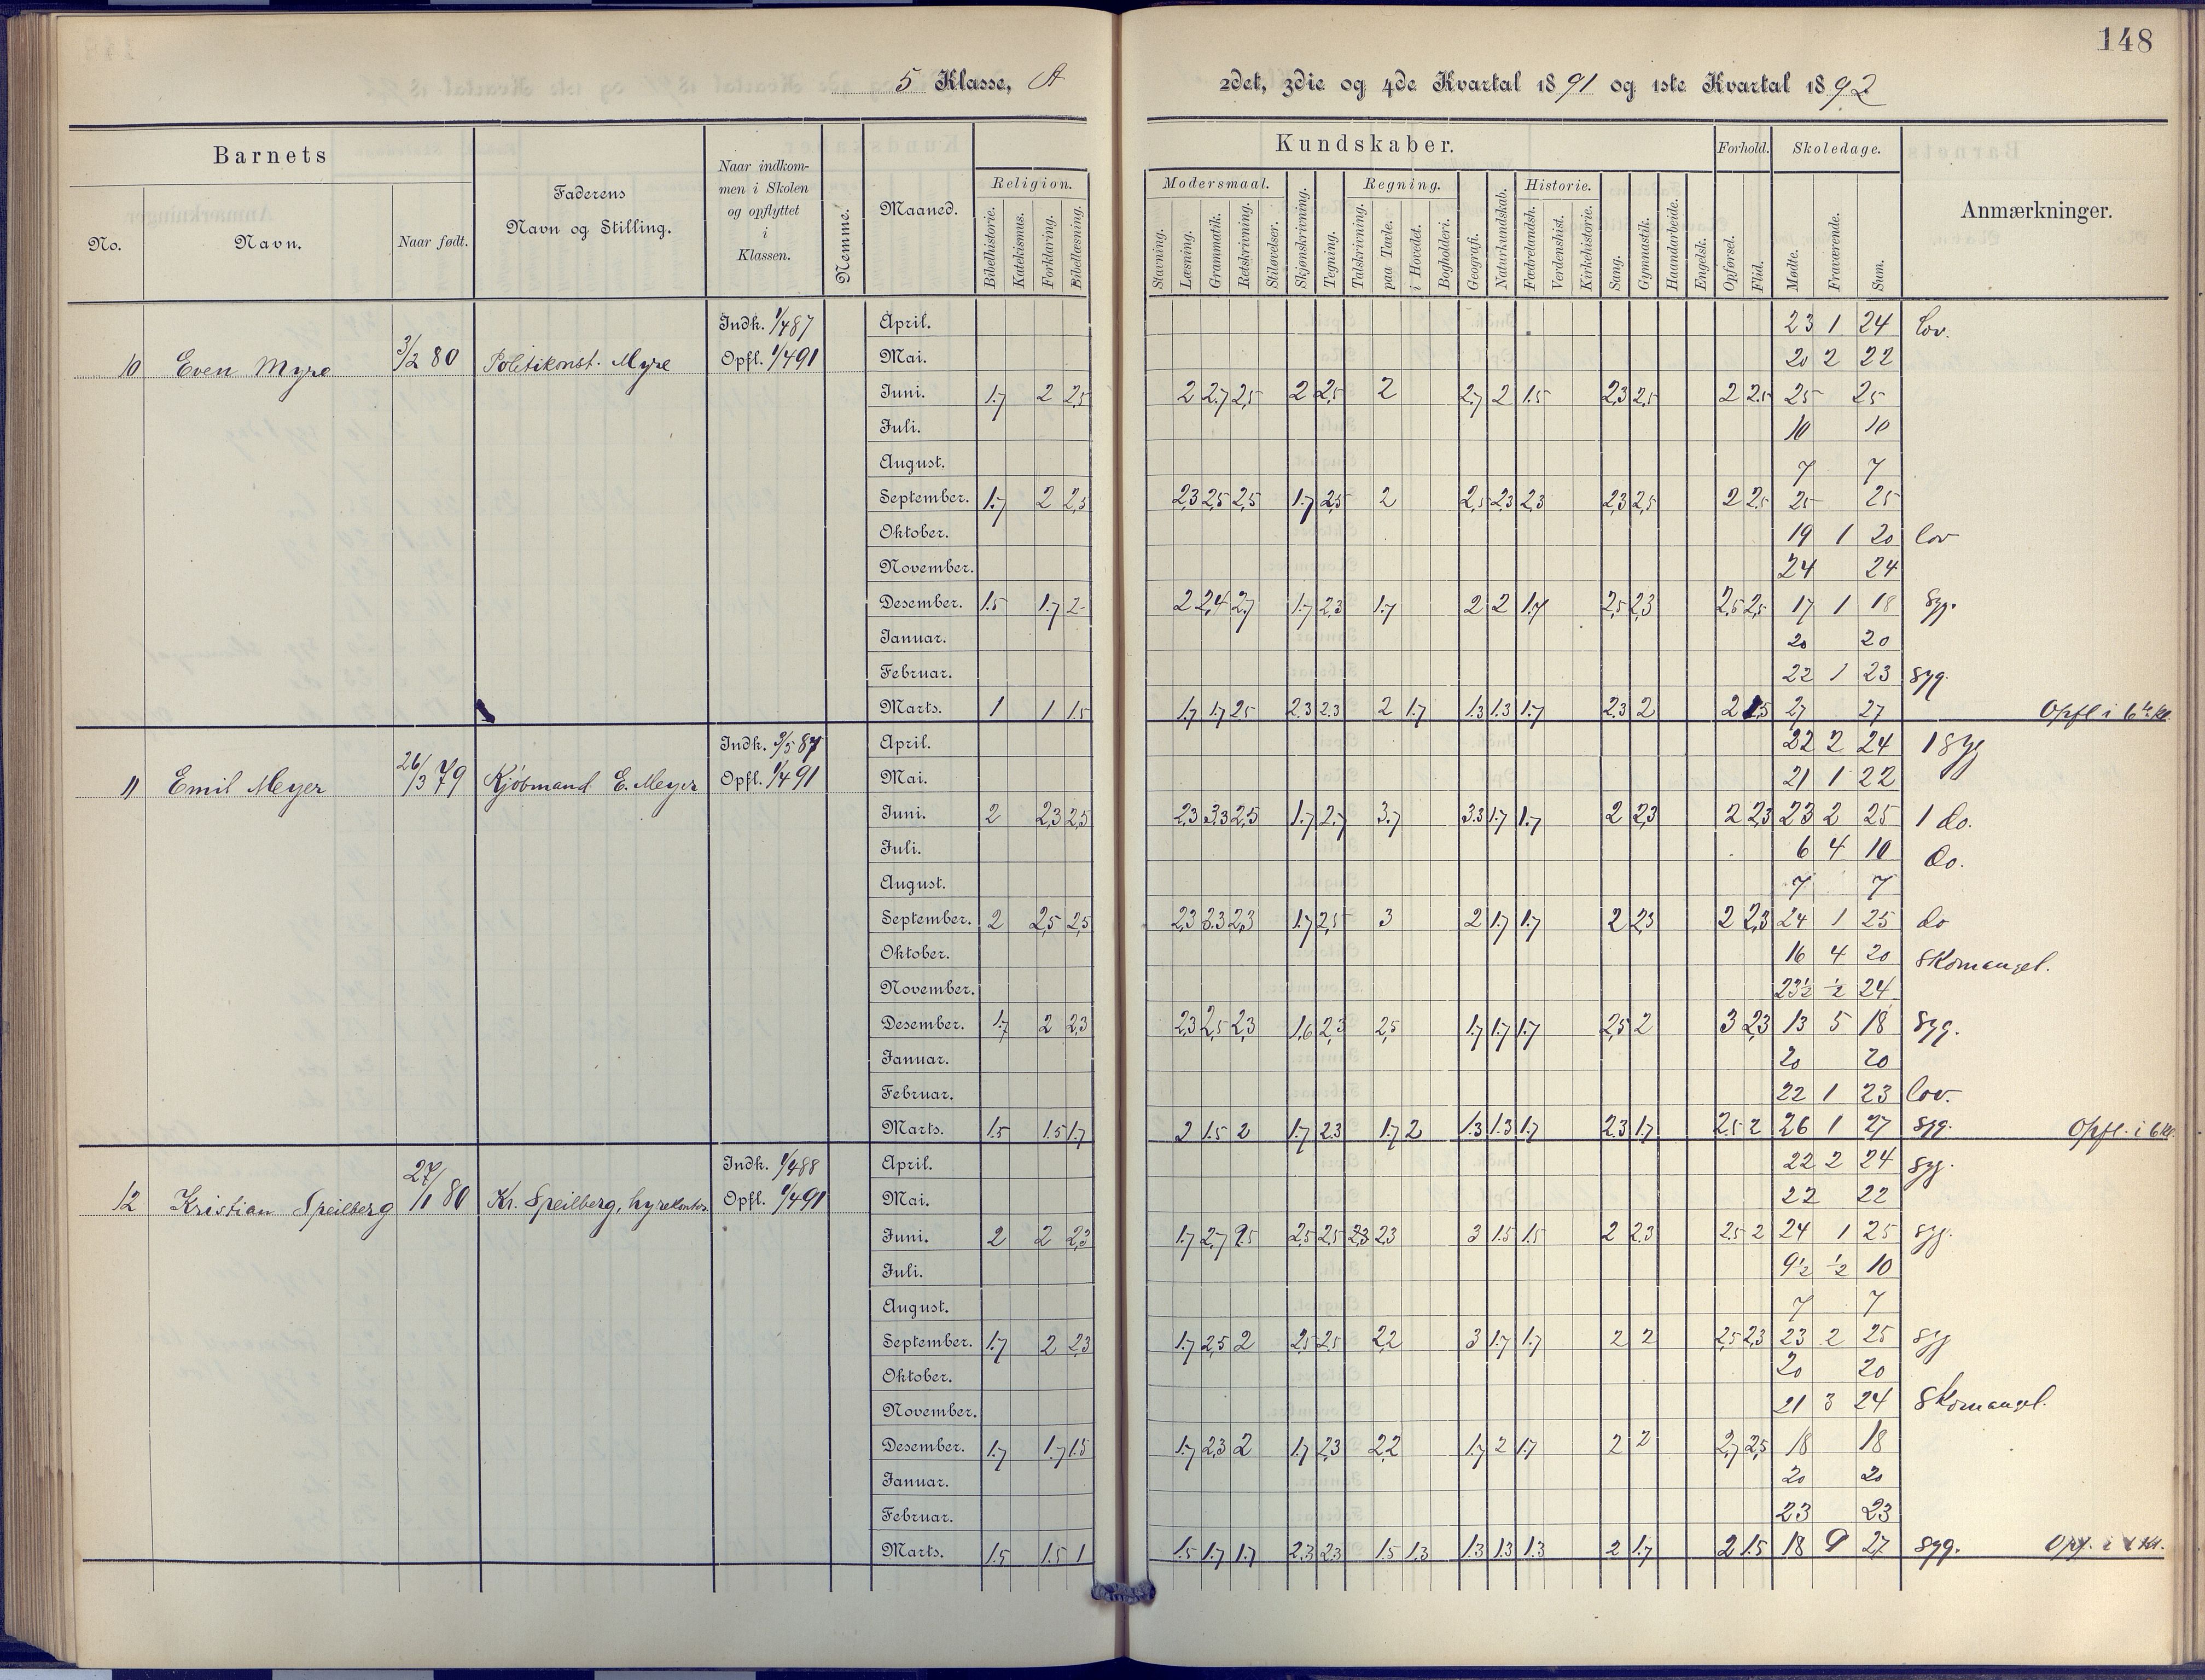 148
5 Klasse, A 2det, 3die og 4de Kvartal 1891 og 1ste Kvartal 1892
Barnets
No. Navn. Naar født.
Faderens
Navn og Stilling.
Naar indkom-
men i Skolen
og opflyttet
i
Klassen.
Nemme.
Maaned.
Kundskaber.
Religion.
Bibelhistorie. Katekismus. Forklaring. Bibellæsning.
Modersmaal.
Stavning. Læsning. Grammatik. Retskrivning. Stiløvelser.
Skjønskrivning. Tegning.
Regning.
Talskrivning. paa Tavle. i Hovedet. Bogholderi.
Geografi. Naturkundskab.
Historie.
Fædrelandsh. Verdenshist. Kirkehistorie.
Sang. Gymnastik. Haandarbeide. Engelsk.
Forhold.
Opførsel. Flid.
Skoledage.
Mødte. Fraværende. Sum.
Anmærkninger.
10 Even Myre 3/2 80 Politikonst. Myre
Indk. 1/4 87
Opfl. 1/4 91
April. 23 1 24 Lov.
Mai. 20 2 22
Juni. 1.7 2 2,5 2 2.7 2,5 2 2,5 2 2,7 2 1.5 2,3 2,5 2 2.5 25 25
Juli. 10 10
August. 7 7
September. 1.7 2 2,3 2,3 2,5 2,5 1.7 2,5 2 2,5 2,3 2,3 2,3 2,5 2 2,5 25 25
Oktober. 19 1 20 lov
November. 24 24
Desember. 1.5 1.7 2 2 2,4 2,7 1.7 2,3 1.7 2 2 1.7 2,5 2,3 2,5 2,5 17 1 18 Syg.
Januar. 20 20
Februar. 22 1 23 Syg.
Marts. 1 1 1.5 1.7 1.7 2.5 2.3 2.3 2 1.7 1.3 1.3 1.7 2.3 2 2 1.5 27 27 Opfl i 6te Kl.
11 Emil Meyer 26/3 79 Kjöbmand E. Meyer
Indk. 2/5 87
Opfl. 1/4 91
April. 22 2 24 1 Syg
Mai. 21 1 22
Juni. 2 2,3 2,5 2,3 3.3 2,5 1.7 2.7 3.7 3.3 1.7 1.7 2 2,3 2 2,3 23 2 25 1 do.
Juli. 6 4 10 do.
August. 7 7
September. 2 2,5 2,5 2,3 3.3 2,3 1.7 2,5 3 2 1.7 1.7 2 2,3 2 2,3 24 1 25 do
Oktober. 16 4 20 Skomangel.
November. 23½ ½ 24
Desember. 1.7 2 2,3 2,3 2,5 2,3 1,6 2,3 2,5 1.7 1.7 1.7 2,5 2 3 2,3 13 5 18 Syg.
Januar. 20 20
Februar. 22 1 23 Lov.
Marts. 1.5 1.5 1.7 2 1.5 2 1.7 2.3 1.7 2 1.3 1.3 1.7 2.3 1.7 2.5 2 26 1 27 Syg. Opfl. i 6 Kl.
12 Kristian Speilberg 27/1 80 Kr. Speilberg, hyrekontor.
Indk. 1/4 88
Opfl. 1/4 91
April. 22 2 24 Syg.
Mai. 22 22
Juni. 2 2 2,3 1.7 2,7 2.5 2,5 2,5 2,3 2,3 3 1.5 1.5 2 2.3 2.5 2 24 1 25 Syg.
Juli. 9½ ½ 10
August. 7 7
September. 1.7 2 2,3 1.7 2,5 2 2,5 2,5 2,2 3 1.7 1.7 2 2 2,5 2,3 23 2 25 Syg
Oktober. 20 20
November. 21 3 24 Skomangel.
Desember. 1.7 1.7 1.5 1.7 2.3 2 1.7 2,3 2,2 1.7 2 1.7 2 2 2,7 2,5 18 18
Januar. 20 20
Februar. 23 23
Marts. 1.5 1.5 1 1.5 1.7 1.7 2.3 2.3 1.5 1.3 1.3 1.3 1.3 2 1.7 2 1.5 18 9 27 Syg.